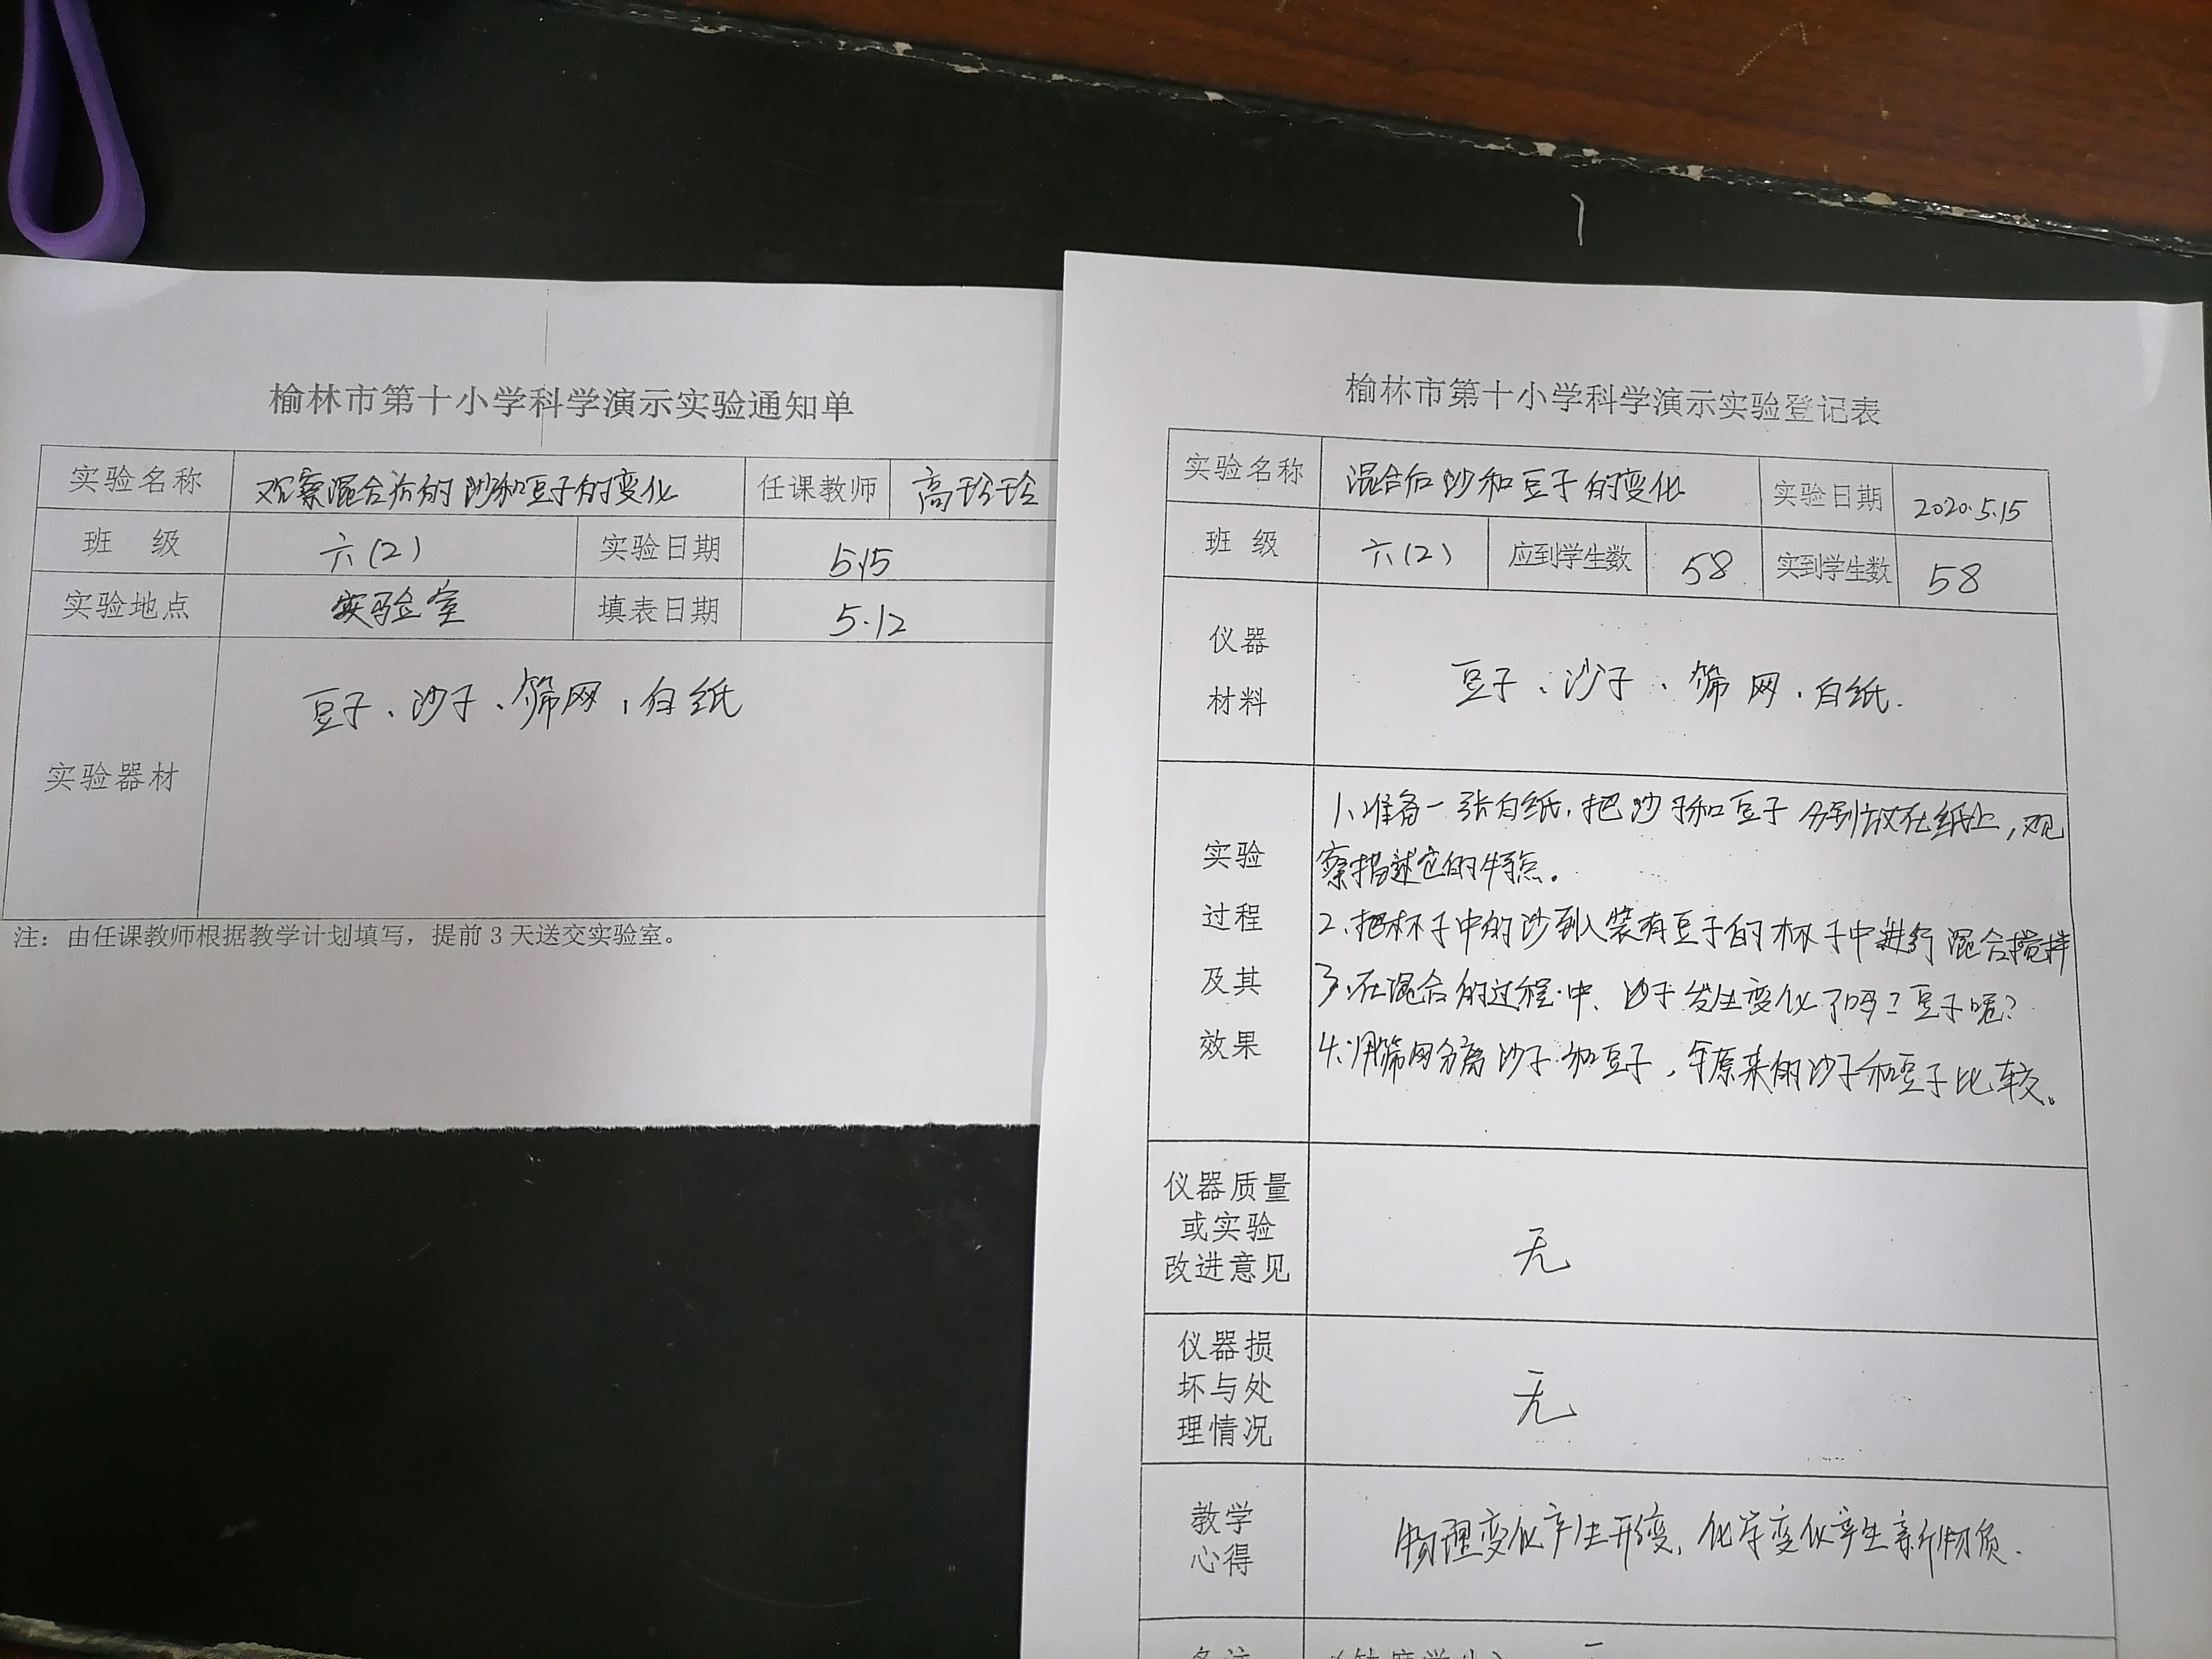 榆林市第十小学科学演示实验通知单
实验名称 观察混合后的沙和豆子的变化 任课教师 高珍珍
班 级 六(2) 实验日期 5.15
实验地点 实验室 填表日期 5.12
实验器材 豆子、沙子、筛网、白纸
注：由任课教师根据教学计划填写，提前3天送交实验室。
榆林市第十小学科学演示实验登记表
实验名称 混合后沙和豆子的变化 实验日期 2020.5.15
班 级 六(2) 应到学生数 58 实到学生数 58
仪器
材料
豆子、沙子、筛网、白纸.
实验
过程
及其
效果
1、准备一张白纸,把沙子和豆子分别放在纸上,观
察描述它的特点。
2、把杯子中的沙到入装有豆子的杯子中进行混合搅拌
3、在混合的过程中、沙子发生变化了吗?豆子呢?
4、用筛网分离沙子和豆子,与原来的沙子和豆子比较。
仪器质量
或实验
改进意见
无
仪器损
坏与处
理情况
无
教学
心得
物理变化产生形变,化学变化产生新物质.